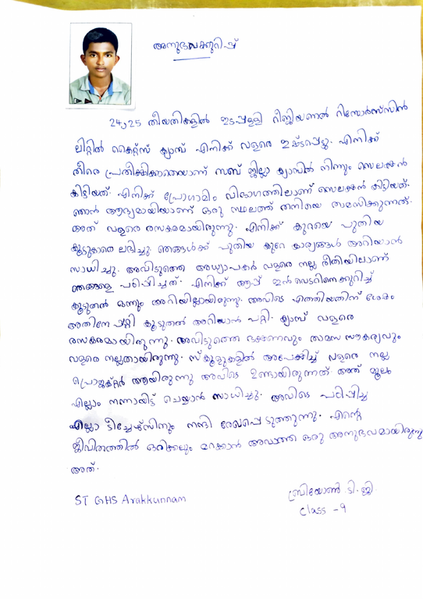 അനുഭവക്കുറിപ്പ്
24,25 തീയതികളിൽ ഇടപ്പള്ളി റീജ്യിണൽ റിസോർസ്സിൽ
ലിറ്റിൽ കൈറ്റ്സ് ക്യാമ്പ് എനിക്ക് വളരെ ഇഷ്ടപ്പെട്ടു. എനിക്ക്
തീരെ പ്രതീക്ഷിക്കാതെയാണ് സബ് ജില്ലാ ക്യാമ്പിൽ നിന്നും സെലക്ഷൻ
കിട്ടിയത്. എനിക്ക് പ്രോഗ്രാമിം വിഭാഗത്തിലാണ് സെലക്ഷൻ കിട്ടിയത്.
ഞാൻ ആദ്യമായിയാണ് ഒരു സ്ഥലത്ത് തനിയെ താമസിക്കുന്നത്.
അത് വളരെ രസകരമായിരുന്നു. എനിക്ക് കുറയെ പുതിയ
കൂട്ടുകാരെ ലഭിച്ചു ഞങ്ങൾക്ക് പുതിയ കുറേ കാര്യങ്ങൾ അറിയാൻ
സാധിച്ചു. അവിടുത്തെ അധ്യാപകർ വളരെ നല്ല രീതിയിലാണ്
ഞങ്ങളെ പഠിപ്പിച്ചത്. എനിക്ക് ആപ്പ് ഇൻവെടറിനെക്കുറിച്ച്
കൂടുതൽ ഒന്നും അറിയില്ലായിരുന്നു. അവിടെ എത്തിയതിന് ശേഷം
അതിനെ പറ്റി കൂടുതൽ അറിയാൻ പറ്റി. ക്യാമ്പ് വളരെ
രസകരമായിരുന്നു. അവിടുത്തെ ഭക്ഷണവും താമസ സൗകര്യവും
വളരെ നല്ലതായിരുന്നു. സ്കൂളുകളിൽ അപേക്ഷിച്ച് വളരെ നല്ല
പ്രൊജക്റ്റർ ആയിരുന്നു അവിടെ ഉണ്ടായിരുന്നത് അത് മൂലം
എല്ലാം നന്നായിട്ട് ചെയ്യാൻ സാധിച്ചു. അവിടെ പഠിപ്പിച്ച
എല്ലാ ടീച്ചേഴ്സിനും നന്ദി രേഖപ്പെടുത്തുന്നു. എന്റെ
ജീവിതത്തിൽ ഒരിക്കലും മറക്കാൻ ആവാത്ത ഒരു അനുഭവമായിരുന്നു
അത്.
ST GHS Arakkunnam
ബ്രിയോൺ ടി.ജി
Class -9